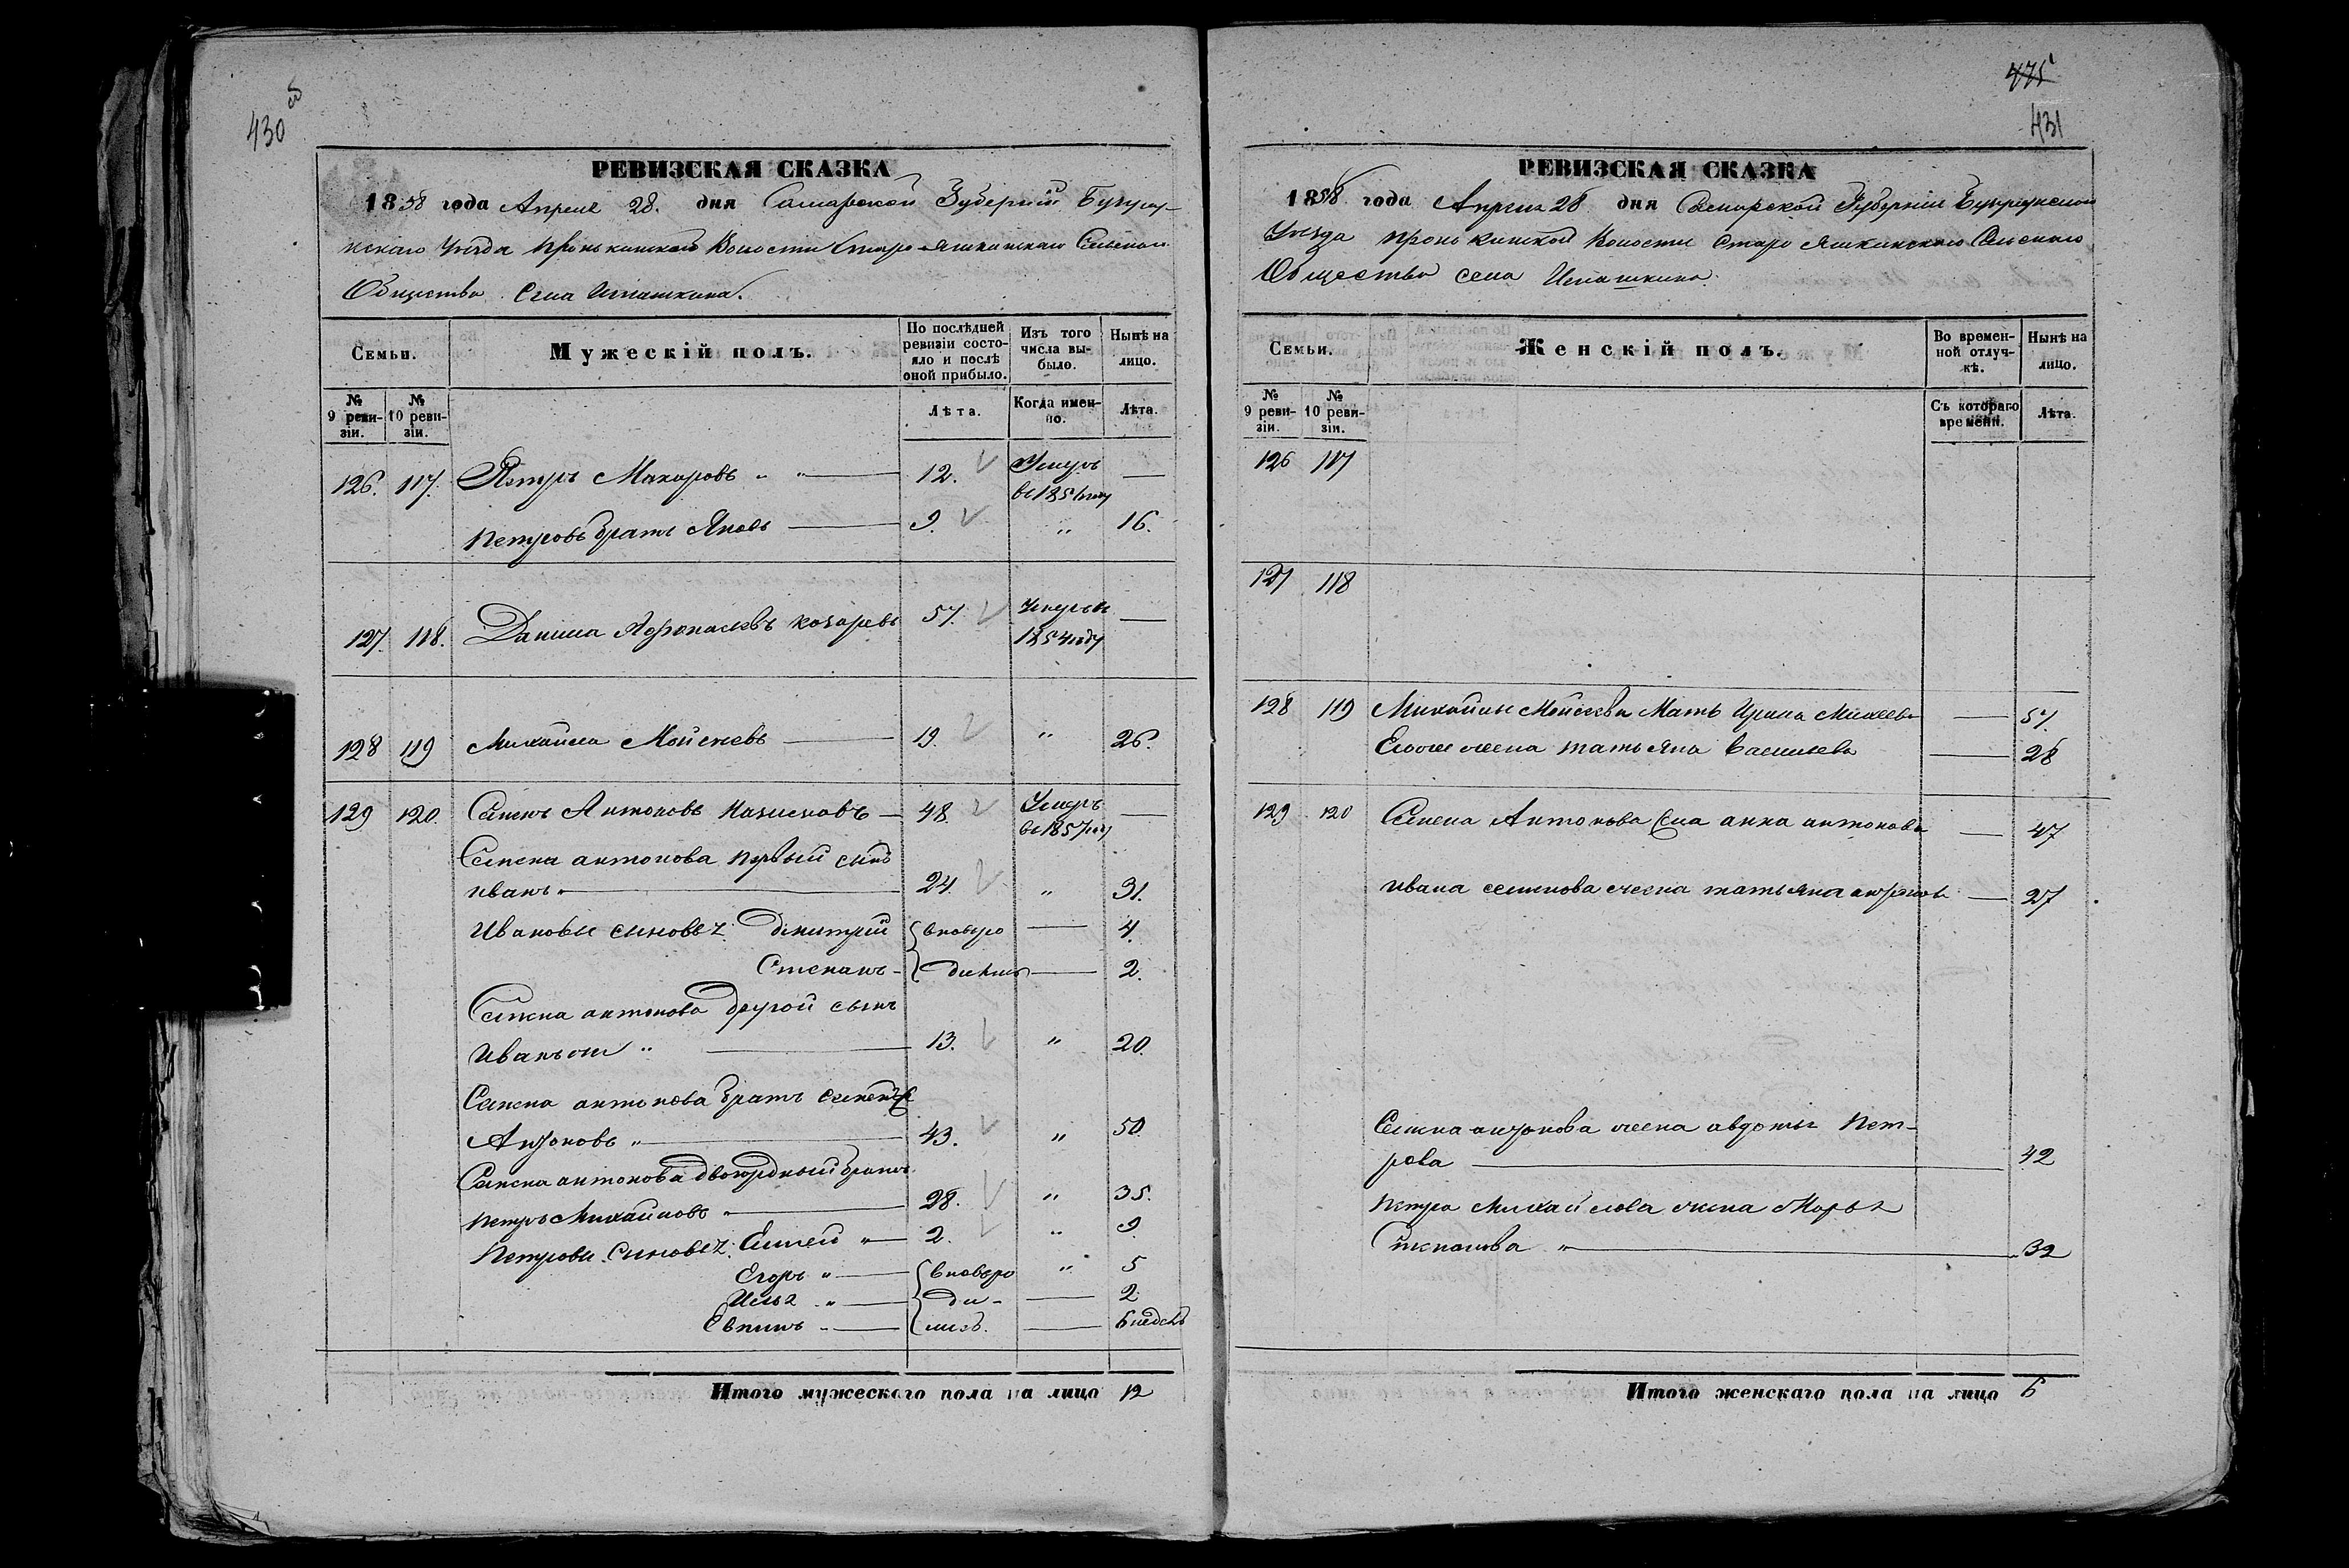 430 об
РЕВИЗСКАЯ СКАЗКА
1858 года Апреля 28. дня Самарской Губернии Бугуру-
Уезда Пронькинской Волости Старо-Яшкинскаго Сельскаго
Общества Села Ипашкина.
Семьи.
Мужескій полъ.
По послѣдней ревизіи состо-
яло и послѣ
оной прибыло.
Изъ того
числа вы-
было.
Нынѣ на
лицо.
№ 9 реви-
зіи.
№ 10 реви-
зіи.
Лѣта.
Когда имен-
но.
Лѣта.
126. 117. Петръ Макаровъ " " — 12. Умеръ —
в 1851 году
Петровъ братъ Яковъ — 9. " 16.
127. 118. Данила Афонасьевъ 57. Умеръ в —
1854 году
128 119 Михайла Мойсеевъ — 19. " 26.
129 120. Семенъ Антоновъ — 48. Умеръ —
в 1857 году
Семена антонова первый сынъ
иванъ " — 24. " 31.
Ивановы сыновья: Дмитрий вновьро — 4.
Степанъ - дились — 2.
Семена антонова другой сынъ
Иванъ " — 13. " 20.
Семена антонова братъ
Антоновъ " — 43. " 50
Семена антонова двоюрдный братъ
петръ Михайловъ " — 28. " 35.
Петровы сыновья: " — 2. " 9
Егоръ " — вновьро " 5
Илья " — ди- — 2
" — лись. — 6 недель
Итого мужескаго пола на лицо 12
475
431
РЕВИЗСКАЯ СКАЗКА
1858 года Апреля 28 дня Самарской Губернии Бугурусланскаго
Уезда пронькинской Волости Старо Яшкинскаго Сельскаго
Общества села Ипашкина.
Семьи.
Женскій полъ.
Во времен-
ной отлуч-
кѣ.
Нынѣ на
лицо.
№ 9 реви-
зіи.
№ 10 реви-
зіи.
Съ котораго
времени.
Лѣта.
126 117
127 118
128 119 Михайлы Мойсеева Мать Ирина Михеева — 57.
Евоже жена татьяна Васильева — 28
129 120 Семена Антонова жена анна антонова — 47
ивана семенова жена татьяна — 27
Семена антонова жена авдотья Пет-
рова — 42
петра Михайлова жена Марья
Степанова " — 32
Итого женскаго пола на лицо 6